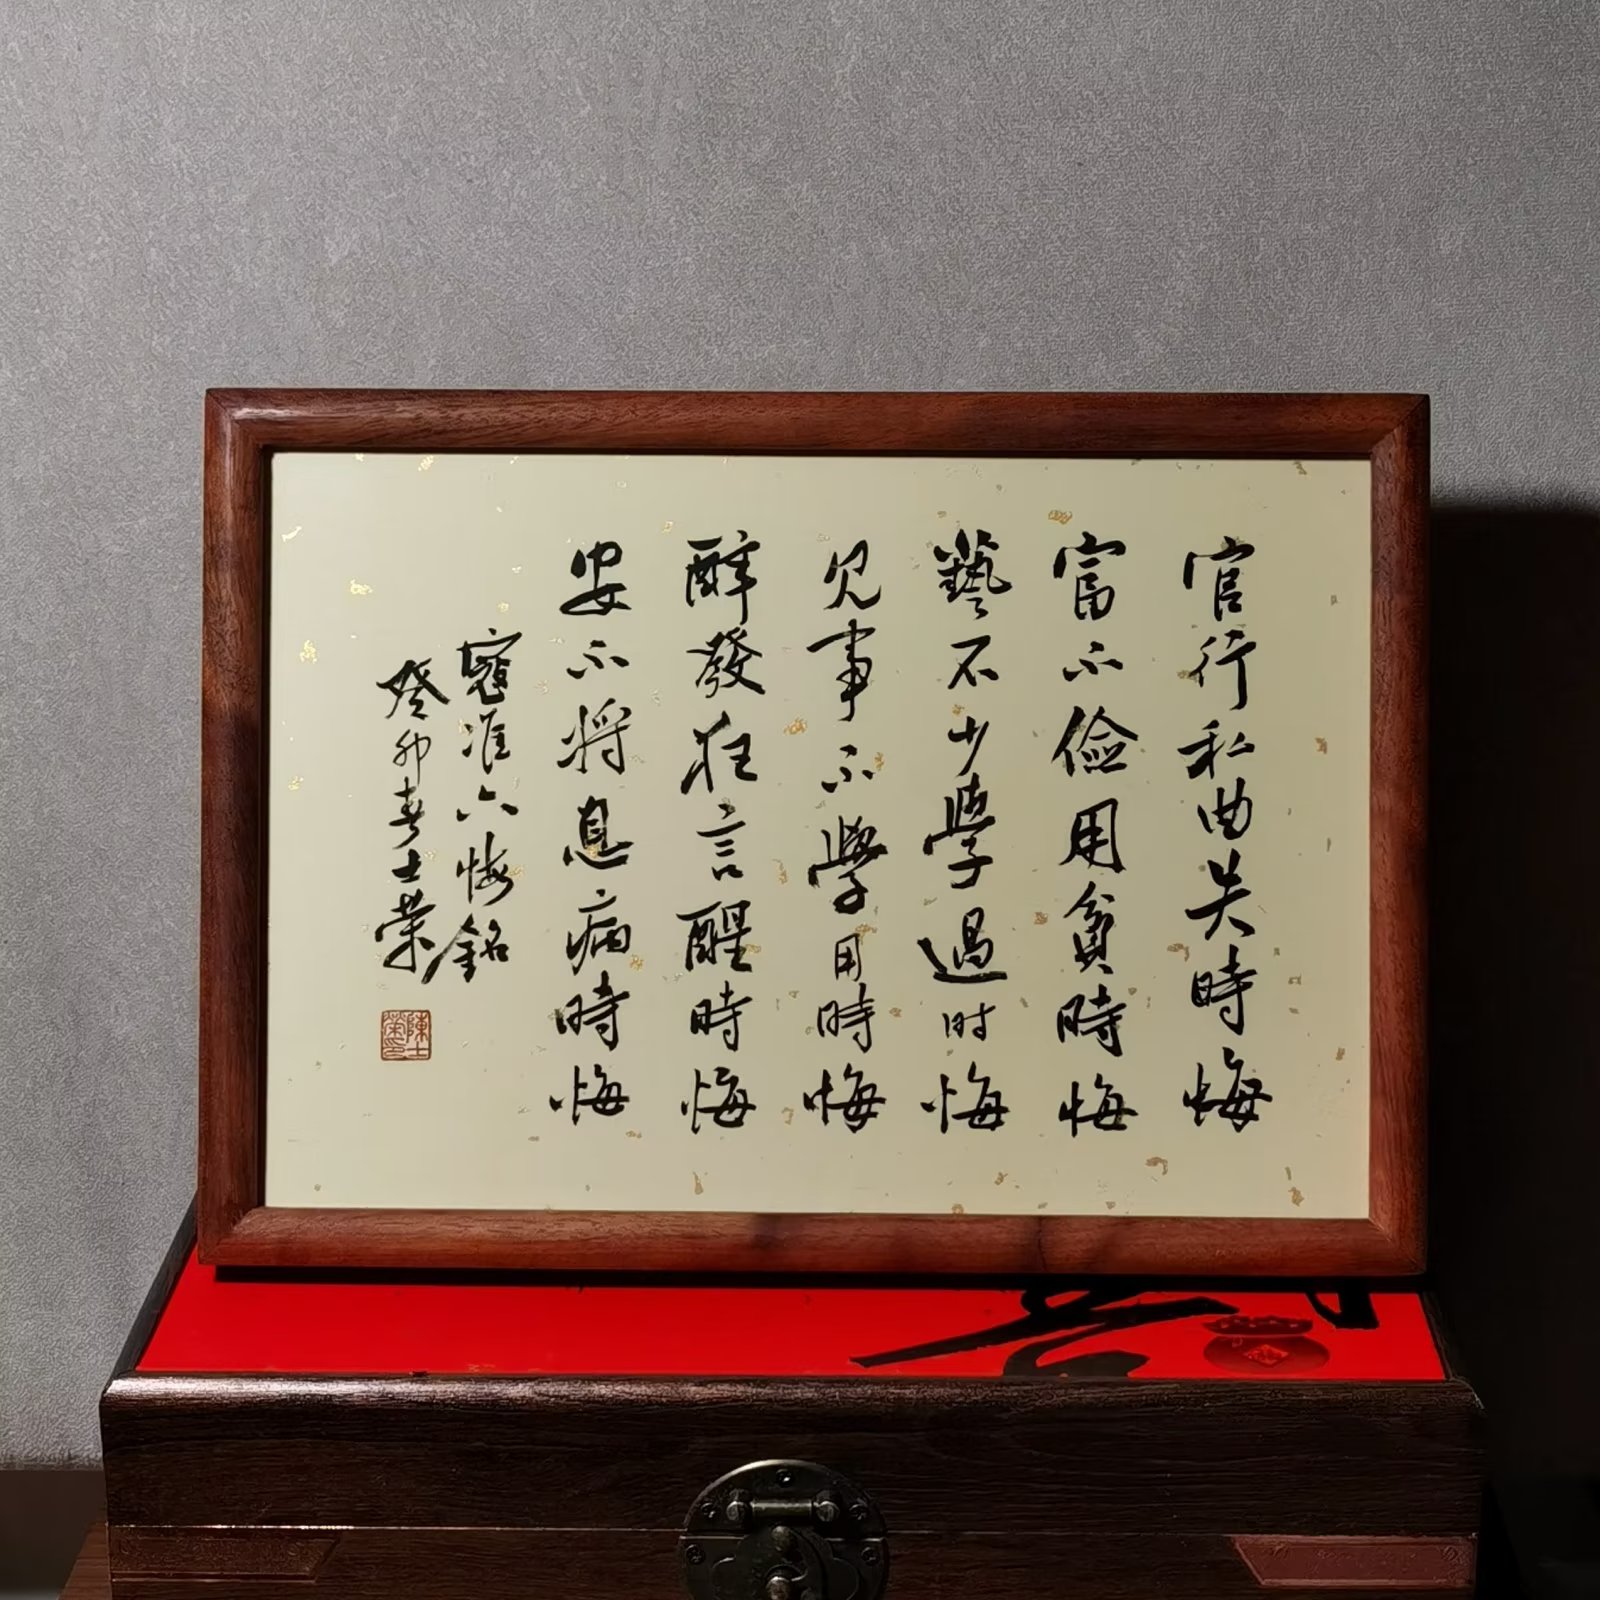 官行私曲失時悔
富不儉用貧時悔
藝不少學過时悔
见事不學用時悔
醉發狂言醒時悔
安不将息病時悔
寇准六悔銘
癸卯春士荣
陳士榮印